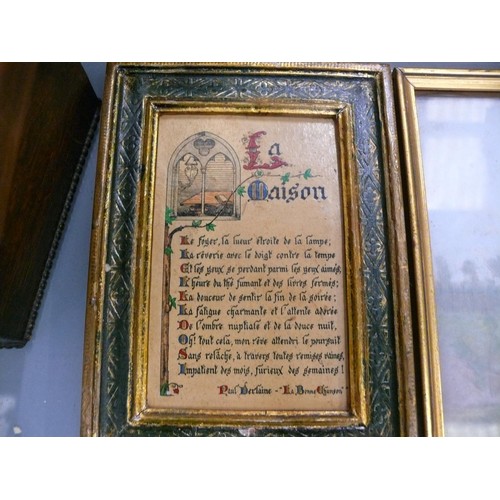 La
Maison
Le foyer, la lueur étroite de la lampe;
La rêverie avec le doigt contre la tempe
Et les yeux se perdant parmi les yeux aimés;
L'heure du thé fumant et des livres fermés;
La douceur de sentir la fin de la soirée;
La fatigue charmante et l'attente adorée
De l'ombre nuptiale et de la douce nuit,
Oh! tout cela, mon rêve attendri le poursuit
Sans relâche, à travers toutes remises vaines,
Impatient des mois, furieux des semaines!
Paul Verlaine - "La Bonne Chanson"